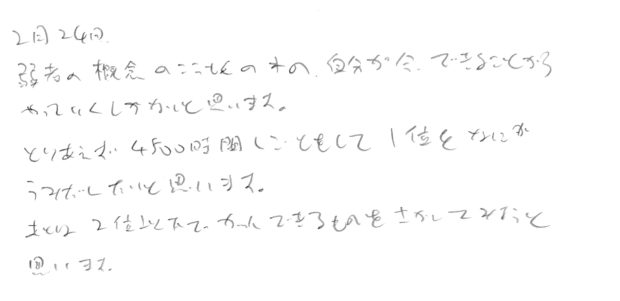 2日24日.
弱者の概念のここもの、自分が今、できることから
やっていくしかないと思います。
とりあえず4500時間しごともして1位をなにか
うみだしたいと思います。
または2位以下で、かってできるものをさがしてみたいと
思います.